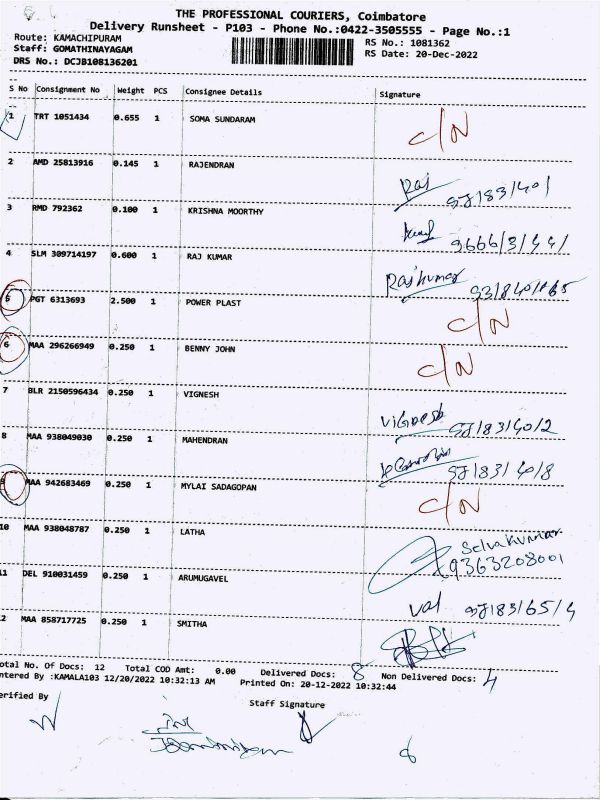 THE PROFESSIONAL COURIERS, Coimbatore
Delivery Runsheet - P103 - Phone No.:0422-3505555 - Page No.:1
Route: KAMACHIPURAM RS No.: 1081362
Staff: GOMATHINAYAGAM RS Date: 20-Dec-2022
DRS No.: DCJB108136201
S No Consignment No Weight PCS Consignee Details Signature
1 TRT 1051434 0.655 1 SOMA SUNDARAM C/N
2 AMD 25813916 0.145 1 RAJENDRAN Raj
3 RMD 792362 0.100 1 KRISHNA MOORTHY
4 SLM 309714197 0.600 1 RAJ KUMAR Rajkumar
5 PGT 6313693 2.500 1 POWER PLAST C/N
6 MAA 296266949 0.250 1 BENNY JOHN C/N
7 BLR 2150596434 0.250 1 VIGNESH Vignesh
8 MAA 938049030 0.250 1 MAHENDRAN
9 MAA 942683469 0.250 1 MYLAI SADAGOPAN C/N
10 MAA 938048787 0.250 1 LATHA Selvakumar
9363208001
11 DEL 910031459 0.250 1 ARUMUGAVEL Val
12 MAA 858717725 0.250 1 SMITHA
otal No. Of Docs: 12 Total COD Amt: 0.00 Delivered Docs: 8 Non Delivered Docs: 4
ntered By :KAMALA103 12/20/2022 10:32:13 AM Printed On: 20-12-2022 10:32:44
erified By Staff Signature
8